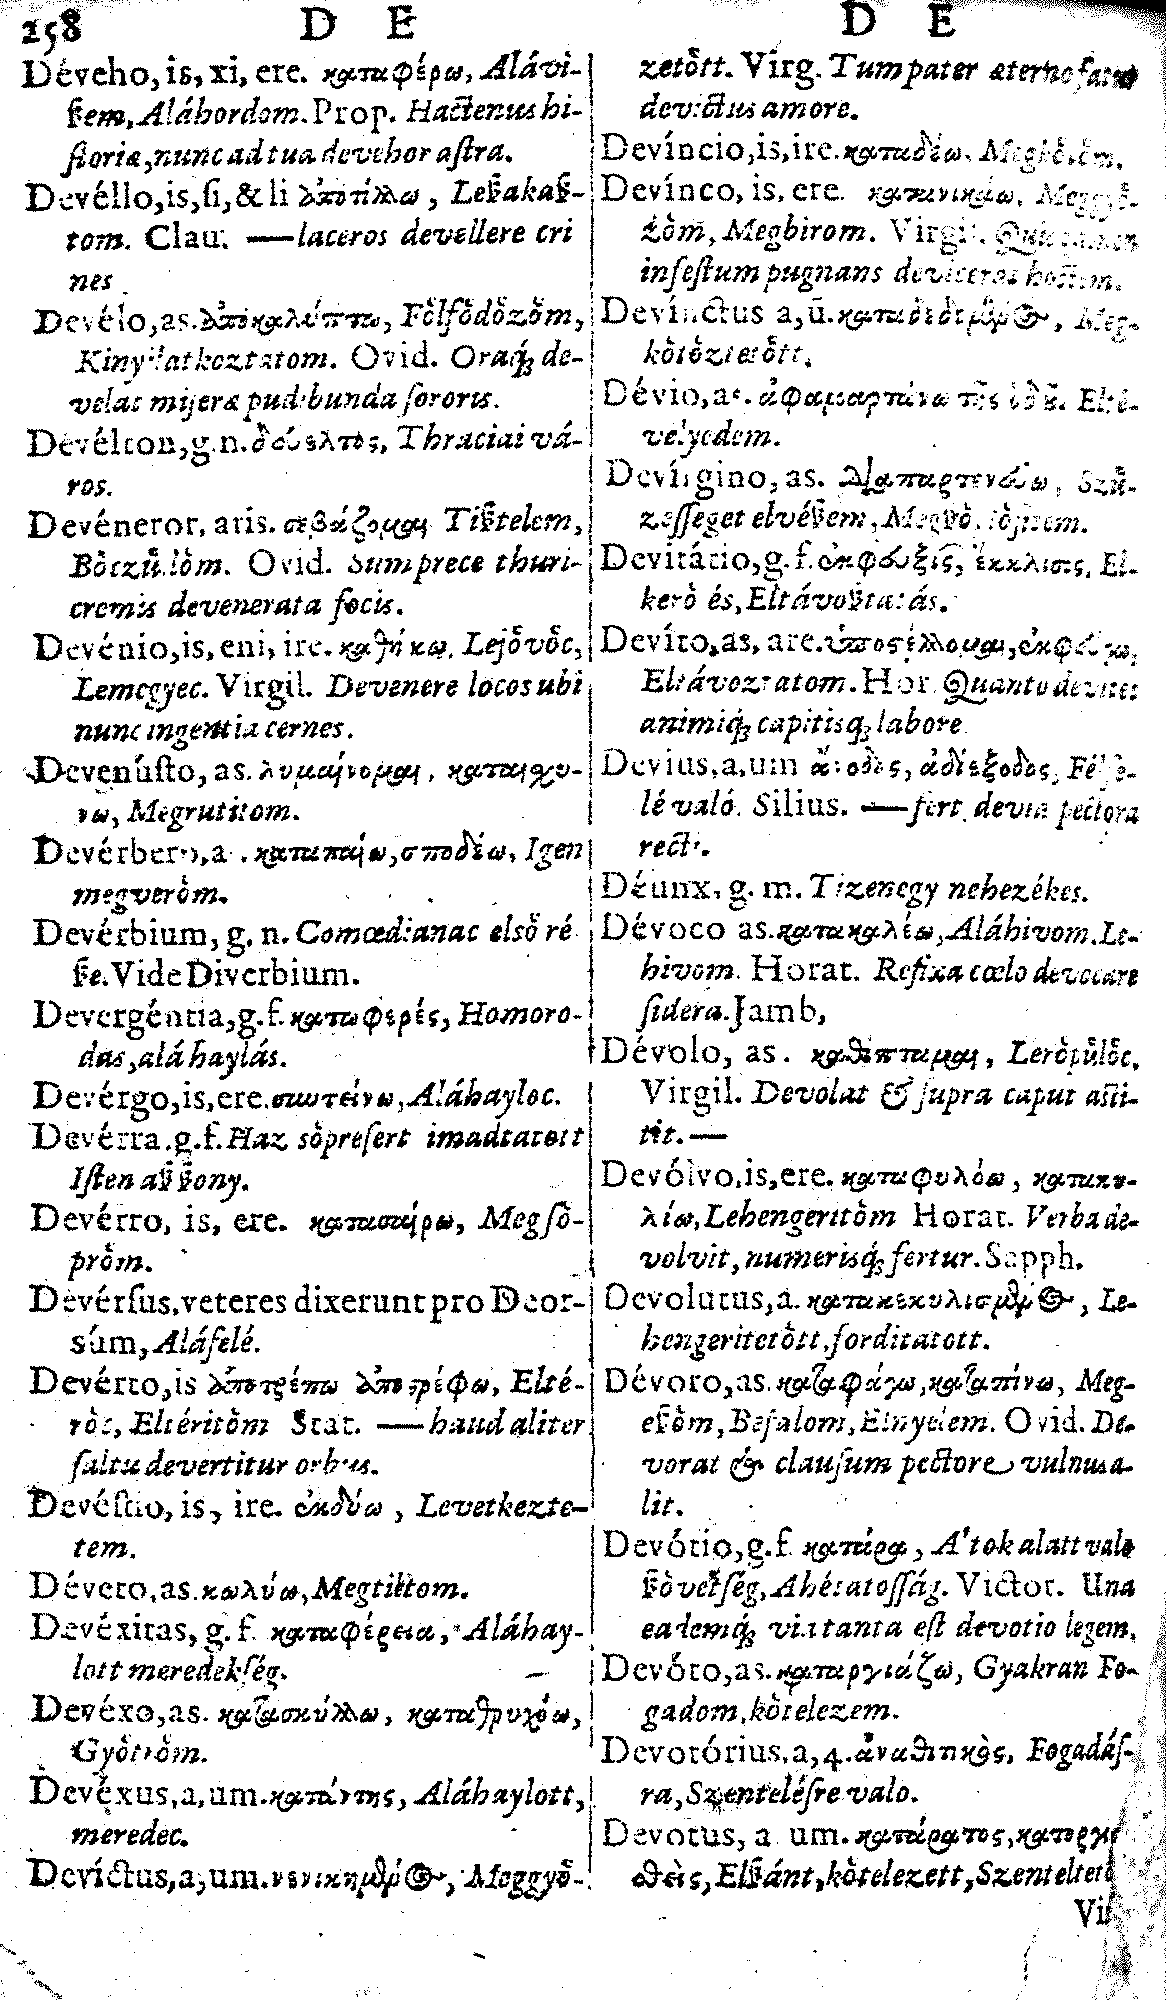 258 D E D E
Déveho, is, xi, ere. καταφέρω, Alávi-
ſzem, Aláhordom. Prop. Hactenus hi-
ſtoriæ, nunc ad tua devehor aſtra.
Devéllo, is, ſi, & li ἀποτίλλω, Leſzakaſz-
tom. Clau. —laceros devellere cri
nes
Devélo, as. ἀποκαλύπτω, Fölfödözöm,
Kinyilatkoztatom. Ovid. Oraq́; de-
velat miſeræ pudibunda ſororis.
Devélton, g. n. δούελτος, Thraciai vá-
ros.
Devéneror, aris. σεβάζομαι Tiſztelem,
Böczűlöm. Ovid. Sum prece thuri-
cremis devenerata focis.
Devénio, is, eni, ire. καθήκω. Lejövöc,
Lemegyec. Virgil. Devenere locos ubi
nunc ingentia cernes.
Devenúſto, as. λυμαίνομαι, καταισχύ-
νω, Megrutitom.
Devérbero, a. καταπαίω, σποδέω, Igen
megveröm.
Devérbium, g. n. Comœdianac elsö ré
ſze. Vide Diverbium.
Devergéntia, g. f. καταφερές, Homoro-
das, aláhaylás.
Devérgo, is, ere. συντείνω, Aláhayloc.
Devérra. g. f. Haz söpreſert imadtatott
Iſten aſzſzony.
Devérro, is, ere. κατασαίρω, Megſö-
pröm.
Devérſus, veteres dixerunt pro Deor-
súm, Aláfelé.
Devérto, is ἀποτρέπω ἀποστρέφω, Elté-
röc, Eltéritöm Stat. —haud aliter
ſaltu devertitur orbus.
Devéſtio, is, ire. ἐκδύω, Levetkezte-
tem.
Déveto, as. κωλύω, Megtiltom.
Devéxitas, g. f. καταφέρεια, Aláhay-
lott meredekſég.
Devéxo, as. κατασκύλλω, κατατρυχόω,
Gyötröm.
Devéxus, a, um. κατάντης, Aláhaylott,
meredec.
Devíctus, a, um. νενικημένος, Meggyö-
zetött. Virg. Tum pater æterno fatur
devictus amore.
Devíncio, is, ire. καταδέω. Megkötöm.
Devínco, is, ere. κατανικάω, Meggyö-
zöm, Megbirom. Virgil.
infeſtum pugnans deviceras hoſtem.
Devínctus a, ū. καταδεδεμένος, Meg-
kötöztetött.
Dévio, as. ἀφαμαρτάνω τῆς ὁδοῦ. Elté-
velyedem.
Devírgino, as. διαπαρθενεύω, Szű-
zeſſeget elvéſzem,
Devitátio, g. f. ἐκφυξις, ἔκκλισις, El-
kerö és, Eltávoſztatás.
Devíto, as, are. ὑποστέλλομαι, ἐκφεύγω,
Eltávoztatom. Hor. Quanto devites
animiq́; capitisq́; labore
Devius, a, um ἄνοδος, ἀδιέξοδος, Félre-
lé való. Silius. —fert devia pectora
recti.
Déunx, g. m. Tizenegy nehezékes.
Dévoco as. κατακαλέω, Aláhivom. Le-
hivom. Horat. Refixa cœlo devocare
ſidera. Jamb,
Dévolo, as. καθίπταμαι, Leröpűlöc.
Virgil. Devolat & ſupra caput aſti-
tit.—
Devólvo, is, ere. καταφυλόω, κατακυ-
λίω, Lehengeritöm Horat. Verba de-
volvit, numerisq́; fertur. Sapph.
Devolutus, a. κατακεκυλισμένος, Le-
hengeritetött, forditatott.
Dévoro, as. καταφάγω, καταπίνω, Meg-
eſzöm, Befalom, Elnyelem. Ovid. De-
vorat & clauſum pectore vulnus a-
lit.
Devótio, g. f. κατάρα, A'tok alatt valo
ſzövetſég, Ahétatoſſág. Victor. Una
eademq́; viri tanta eſt devotio legem.
Devóto, as. καταργιάζω, Gyakran Fo-
gadom, kötelezem.
Devotórius, a, 4. ἀναθετικὸς, Fogadáſ-
ra, Szenteléſre valo.
Devotus, a um. κατάρατος,
Elſzánt, kötelezett, Szenteltet
Vir